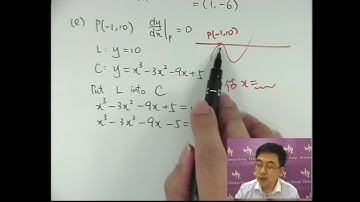 = (1, -6)
(e) P(-1,10) dy/dx|P = 0
P(-1,10)
L: y=10
C: y=x³-3x²-9x+5
Put L into C
x³-3x²-9x+5=
x³-3x²-9x-5=
x=